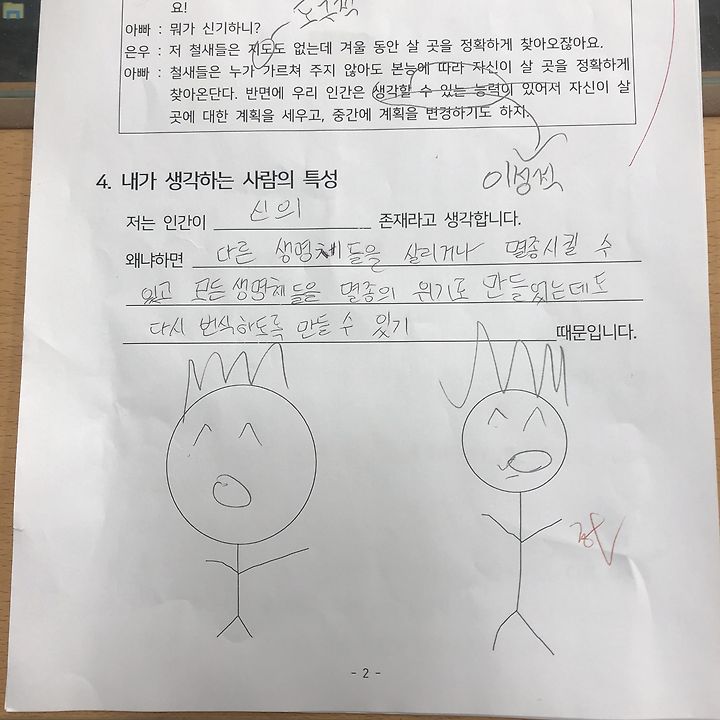 요!
도구적
아빠 : 뭐가 신기하니?
은우 : 저 철새들은 지도도 없는데 겨울 동안 살 곳을 정확하게 찾아오잖아요.
아빠 : 철새들은 누가 가르쳐 주지 않아도 본능에 따라 자신이 살 곳을 정확하게
찾아온단다. 반면에 우리 인간은 생각할 수 있는 능력이 있어서 자신이 살
곳에 대한 계획을 세우고, 중간에 계획을 변경하기도 하지.
이성적
4. 내가 생각하는 사람의 특성
저는 인간이 신의 존재라고 생각합니다.
왜냐하면 다른 생명체들을 살리거나 멸종시킬 수
있고 모든생명체들을 멸종의 위기로 만들었는데도
다시 번식하도록 만들 수 있기 때문입니다.
- 2 -